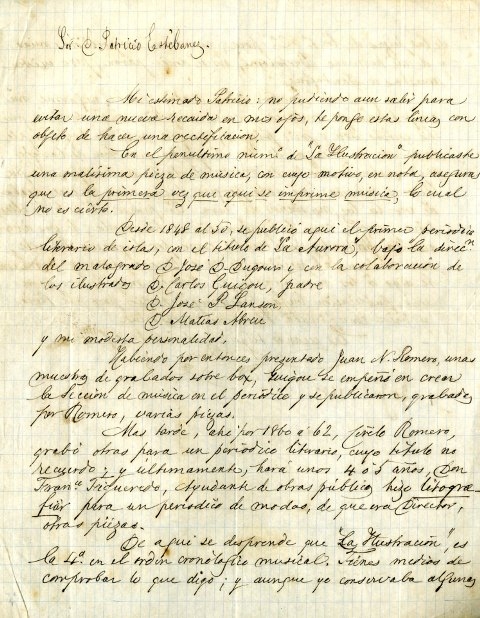 Sr. D. Patricio Estébanez.
Mi estimado Patricio: no pudiendo aun salir para
evitar una nueva recaida en mis ojos, te pongo estas lineas con
objeto de hacer una rectificacion.
En el penultimo num.º de "La Ilustracion" publicaste
una malisima pieza de música, con cuyo motivo, en nota, aseguras
que es la primera vez que aqui se imprime musica, lo cual
no es cierto.
Desde 1848 al 50, se publicó aqui el primer periodico
literario de islas, con el titulo de "La Aurora", bajo la direc.n
del malogrado D. José D. Dugour y con la colaboracion de
los ilustrados D. Carlos Guigou, padre
D. José P. Sanson
D. Matias Abreu
y mi modesta personalidad.
Habiendo por entonces presentado Juan N. Romero, unas
muestras de grabados sobre box, Guigou se empeñó en crear
la seccion de musica en el periodico y se publicaron, grabadas
por Romero, varias piezas.
Mas tarde, ahi por 1860 a 62, Cirilo Romero,
grabó otras para un periodico literario, cuyo titulo no
recuerdo; y ultimamente, hará unos 4 ó 5 años, Don
Fran.co Figueredo, Ayudante de obras públicas, hizo litogra-
fiar para un periodico de modas, de que era Director,
otras piezas.
De aqui se desprende que "La Ilustración", es
la 4.ª en el orden cronologico musical. Tienes medios de
comprobar lo que digo; y aunque yo conservaba algunas